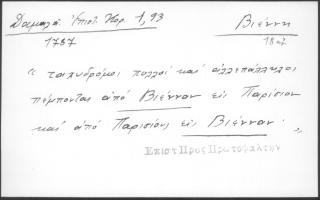 Δαμαλά Ἐπιστ. Κορ. 1, 93 Βιέννη
1787 18 αἰ.
« ταχυδρόμοι πολλοί καί ἀλλεπάλληλοι
πέμπονται ἀπό Βιένναν εἰς Παρίσιον
καί ἀπό Παρισίους εἰς Βιένναν. »
Ἐπιστ Πρὸς Πρωτοψάλτην